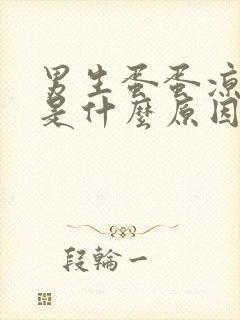 男生蛋蛋凉
是什麼原因
段輪一